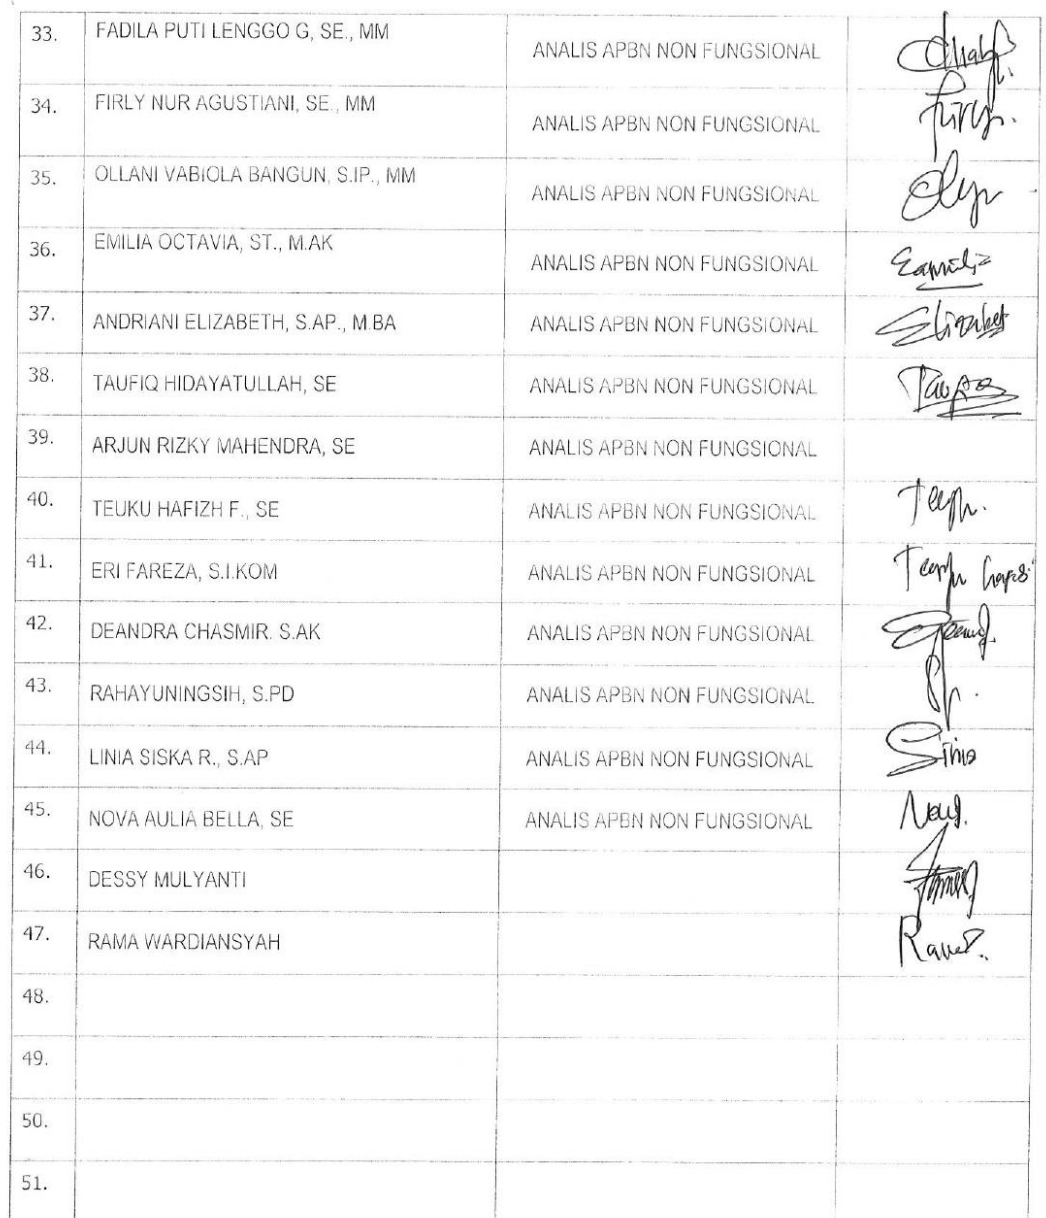 33. FADILA PUTI LENGGO G, SE., MM ANALIS APBN NON FUNGSIONAL
34. FIRLY NUR AGUSTIANI, SE., MM ANALIS APBN NON FUNGSIONAL
35. OLLANI VABIOLA BANGUN, S.IP., MM ANALIS APBN NON FUNGSIONAL
36. EMILIA OCTAVIA, ST., M.AK ANALIS APBN NON FUNGSIONAL
37. ANDRIANI ELIZABETH, S.AP., M.BA ANALIS APBN NON FUNGSIONAL
38. TAUFIQ HIDAYATULLAH, SE ANALIS APBN NON FUNGSIONAL
39. ARJUN RIZKY MAHENDRA, SE ANALIS APBN NON FUNGSIONAL
40. TEUKU HAFIZH F., SE ANALIS APBN NON FUNGSIONAL
41. ERI FAREZA, S.I.KOM ANALIS APBN NON FUNGSIONAL
42. DEANDRA CHASMIR. S.AK ANALIS APBN NON FUNGSIONAL
43. RAHAYUNINGSIH, S.PD ANALIS APBN NON FUNGSIONAL
44. LINIA SISKA R., S.AP ANALIS APBN NON FUNGSIONAL
45. NOVA AULIA BELLA, SE ANALIS APBN NON FUNGSIONAL
46. DESSY MULYANTI
47. RAMA WARDIANSYAH
48.
49.
50.
51.